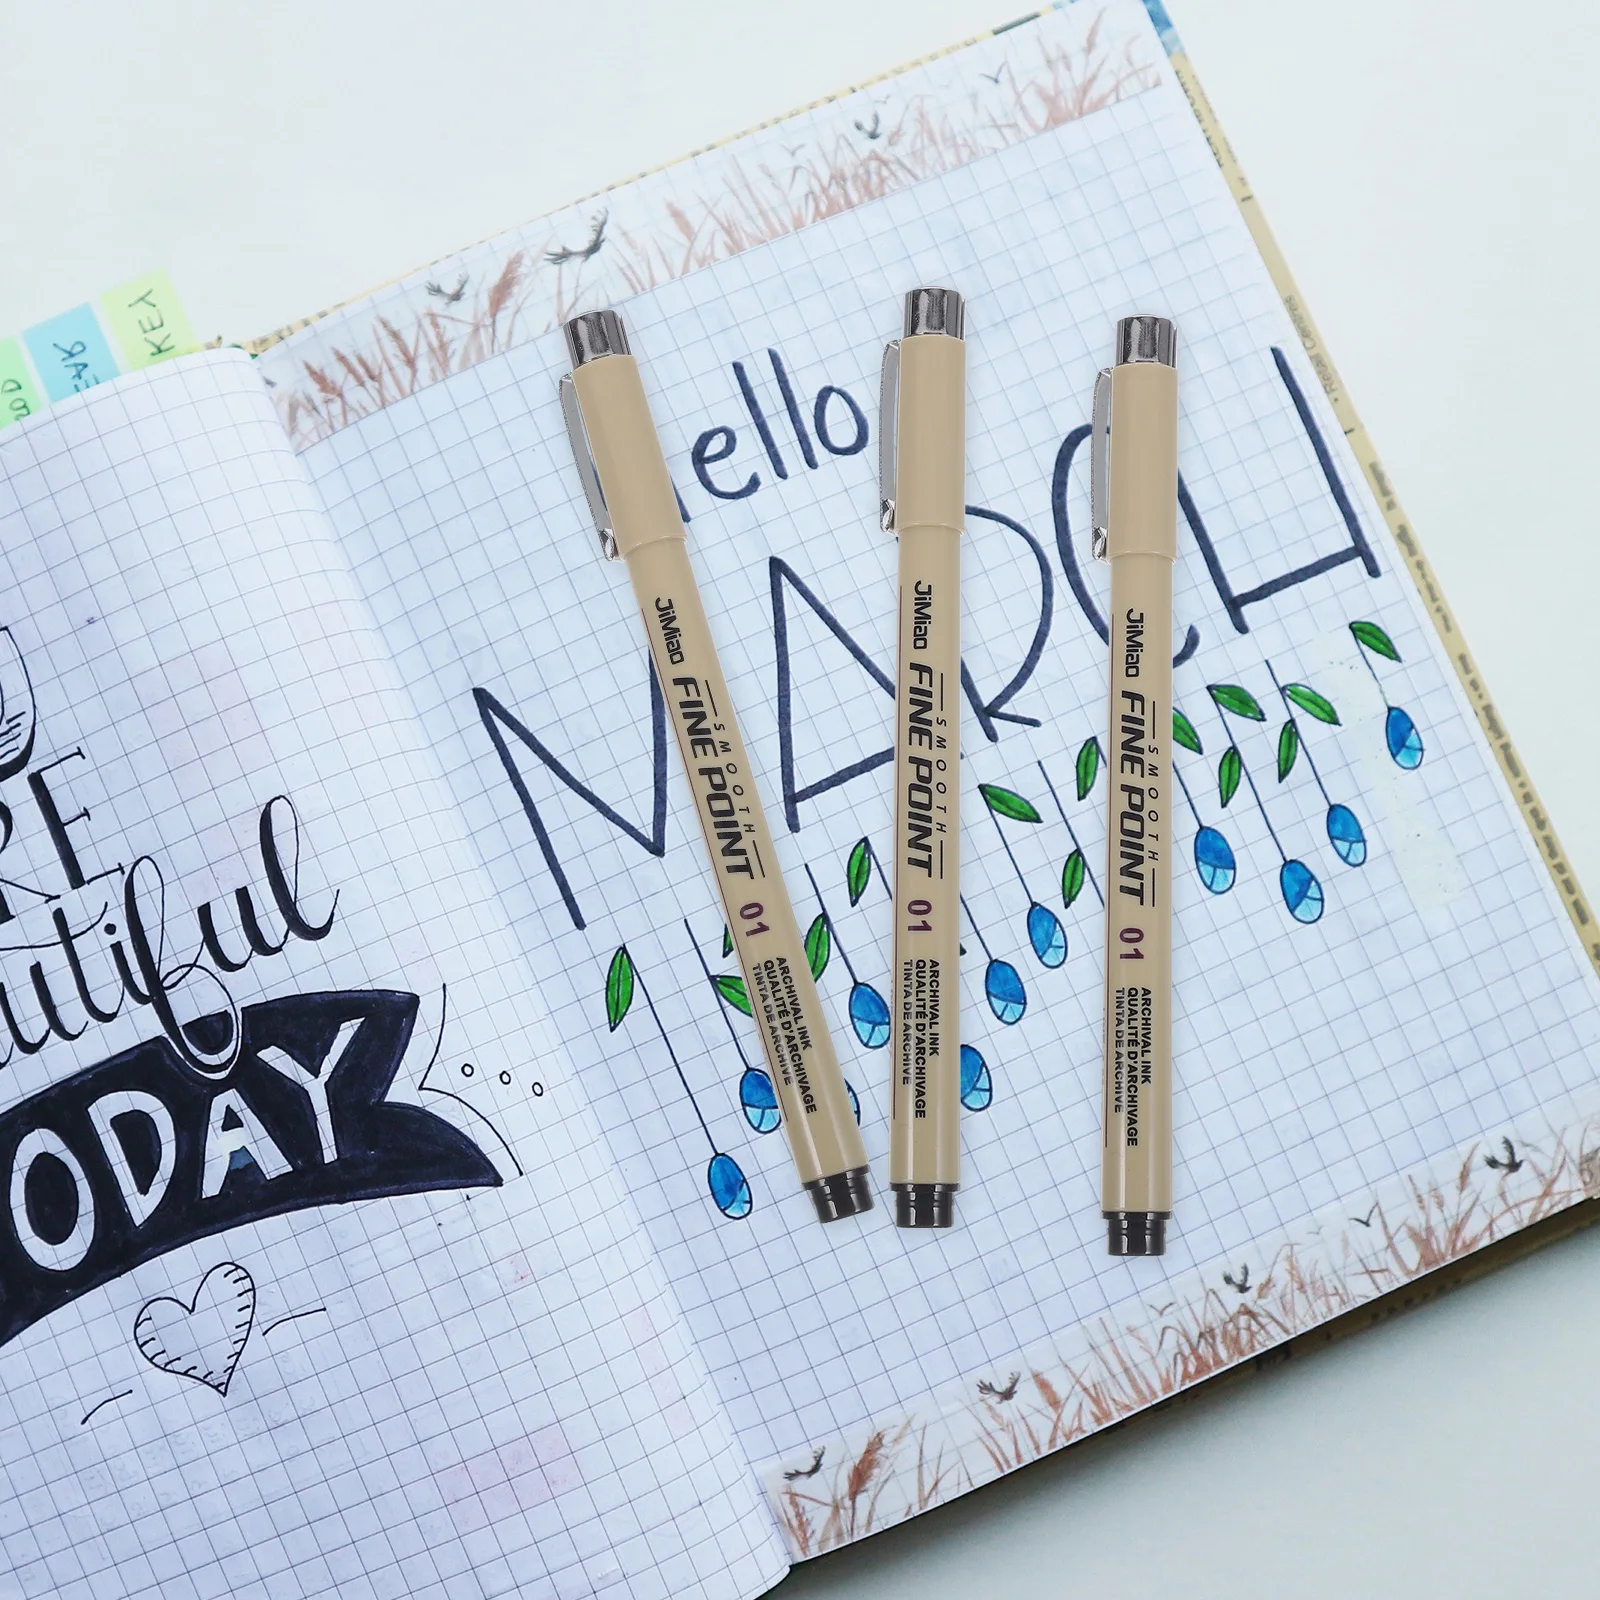 KEY
Hello
MARCH
JiMiao
SMOOTH
FINE POINT
01
ARCHIVAL INK
QUALITÉ D'ARCHIVAGE
TINTA DE ARCHIVE
JiMiao
SMOOTH
FINE POINT
01
ARCHIVAL INK
QUALITÉ D'ARCHIVAGE
TINTA DE ARCHIVE
JiMiao
SMOOTH
FINE POINT
01
ARCHIVAL INK
QUALITÉ D'ARCHIVAGE
TINTA DE ARCHIVE
RE
utiful
ODAY